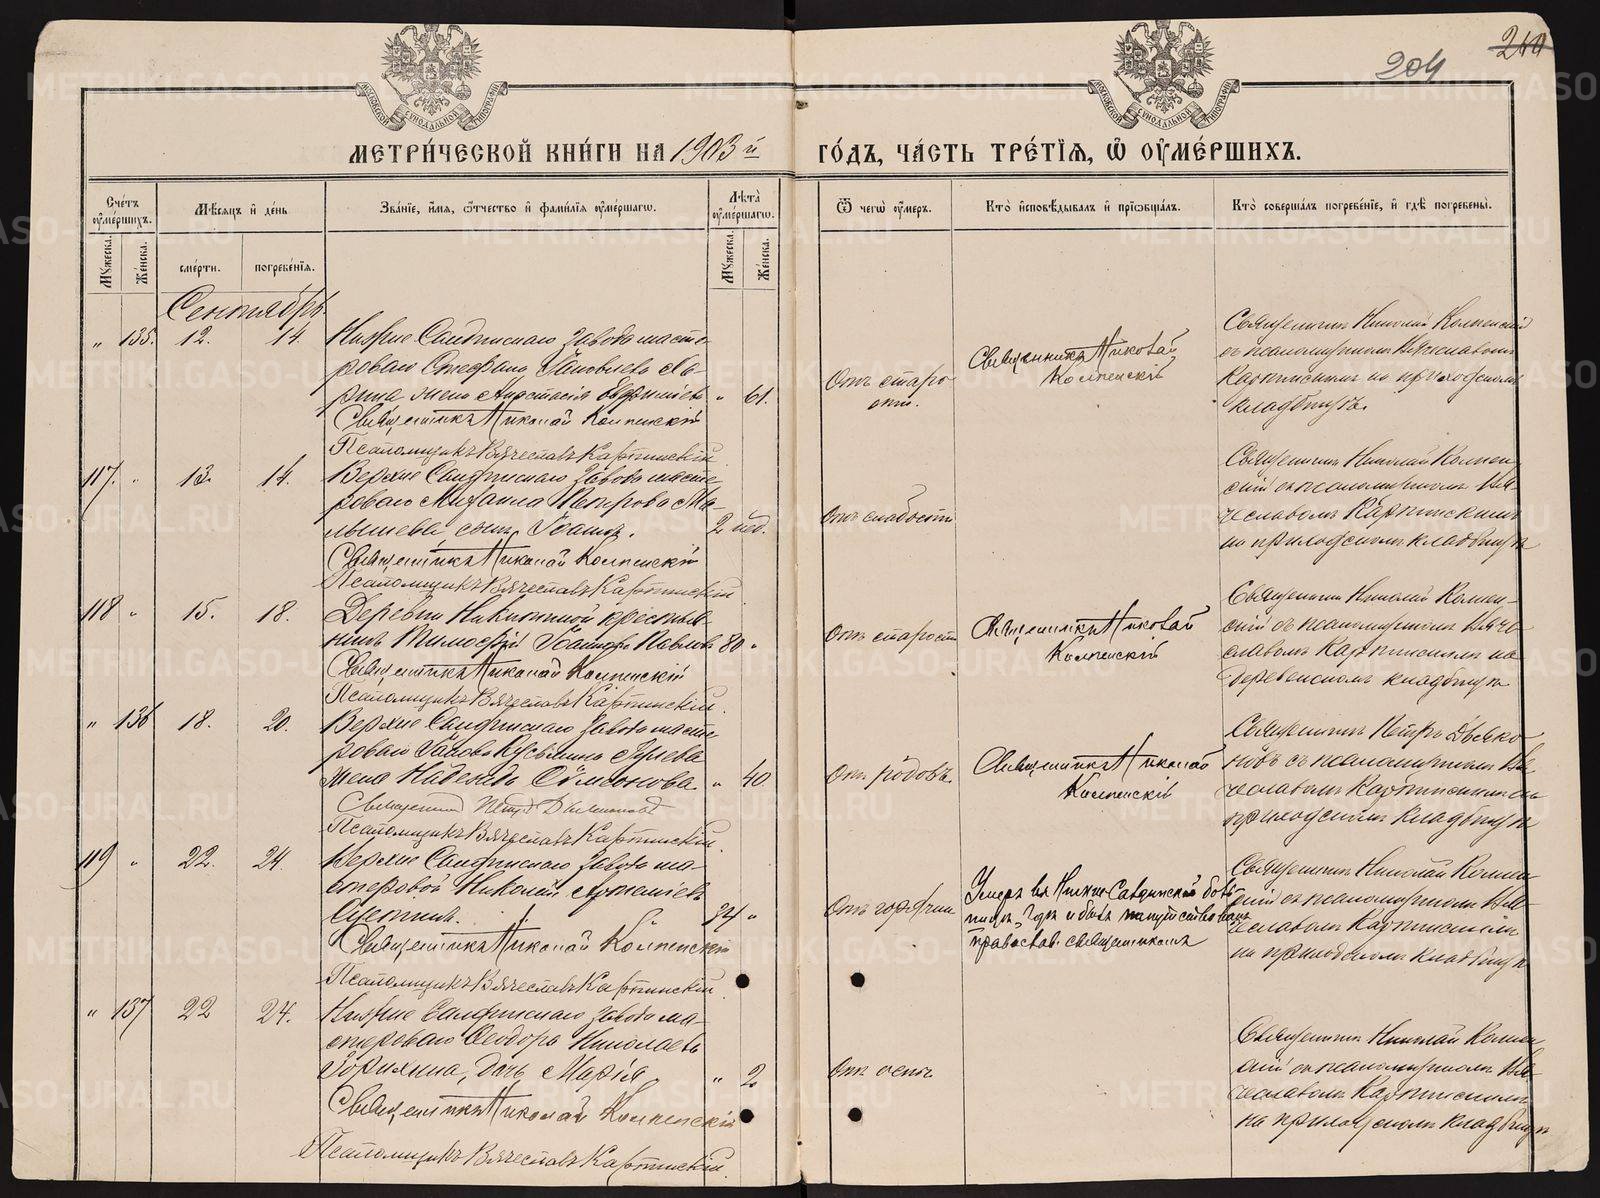 204
210
МЕТРИ́ЧЕСКОЙ КНИ́ГИ НА 1903 й
ГО́ДЪ, ЧА́СТЬ ТРЕ́ТІѦ, Ѿ ОУ҆МЕ́РШИХЪ.
МОСКОВСКОЙ СѴНОДАЛЬНОЙ ТИПОГРАФІИ
МОСКОВСКОЙ СѴНОДАЛЬНОЙ ТИПОГРАФІИ
Сче́тъ оу҆ме́ршихъ.
Мѣ́сѧцъ и҆ де́нь
Зва́нїе, и҆́мѧ, ѻ҆́тчество и҆ фамилїѧ оу҆ме́ршагѡ.
Лѣ́та оу҆ме́ршагѡ.
Ѿ чегѡ̀ оу҆́меръ.
Кто̀ и҆сповѣ́дывалъ и҆ прїѡбща́лъ.
Кто̀ соверша́лъ погребе́нїе, и҆ гдѣ̀ погребены̀.
Мꙋ́жеска.
Же́нска.
сме́рти.
погребе́нїѧ.
Мꙋ́жеска.
Же́нска.
Сентябрь.
" 135. 12. 14. Нижне Салдинскаго завода масте-
роваго Стефана Іаковлева
жена Анастасія " 61.
Священникъ Николай Колпенскій
Псаломщикъ Вячеславъ Карпинскій
Отъ старо-
сти.
Священникъ Николай
Колпенскій
Священникъ Николай Колпенскій
съ псаломщикомъ Вячеславомъ
Карпинскимъ на приходскомъ
кладбищѣ.
117. " 13. 14. Верхне Салдинскаго завода масте-
роваго Михаила Петрова Ма-
лышева, сынъ Іоаннъ. 2 нед.
Священникъ Николай Колпенскій
Псаломщикъ Вячеславъ Карпинскій
Отъ слабости
Священникъ Николай Колпен-
скій съ псаломщикомъ Вя-
чеславомъ Карпинскимъ
на приходскомъ кладбищѣ
118 " 15. 18. Деревни Никитиной крестья-
нинъ Тимофей Іоанновъ Павловъ 80 "
Священникъ Николай Колпенскій
Псаломщикъ Вячеславъ Карпинскій
Отъ старости
Священникъ Николай
Колпенскій
Священникъ Николай Колпен-
скій съ псаломщикомъ Вяче-
славомъ Карпинскимъ на
деревенскомъ кладбищѣ
" 136 18. 20. Верхне Салдинскаго завода масте-
роваго Іакова Кузьмина
жена Надежда Симеонова. " 40
Священникъ Петръ Дьяконовъ
Псаломщикъ Вячеславъ Карпинскій
Отъ родовъ.
Священникъ Николай
Колпенскій
Священникъ Петръ Дьяко-
новъ съ псаломщикомъ Вя-
чеславомъ Карпинскимъ на
приходскомъ кладбищѣ
119 " 22. 24. Верхне Салдинскаго завода ма-
стеровой Николай Артеміевъ
"
Священникъ Николай Колпенскій
Псаломщикъ Вячеславъ Карпинскій
Отъ горячки
Умеръ въ Нижне-Салдинской боль-
ницѣ, гдѣ и былъ напутствованъ
правосл. священникомъ
Священникъ Николай Колпен-
скій съ псаломщикомъ Вя-
чеславомъ Карпинскимъ
на приходскомъ кладбищѣ
" 137 22 24. Нижне Салдинскаго завода ма-
стероваго Ѳеодора Николаева
дочь Марія " 2
Священникъ Николай Колпенскій
Псаломщикъ Вячеславъ Карпинскій
Отъ оспы
Священникъ Николай Колпен-
скій съ псаломщикомъ Вя-
чеславомъ Карпинскимъ
на приходскомъ кладбищѣ
METRIKI.GASO-URAL.RU